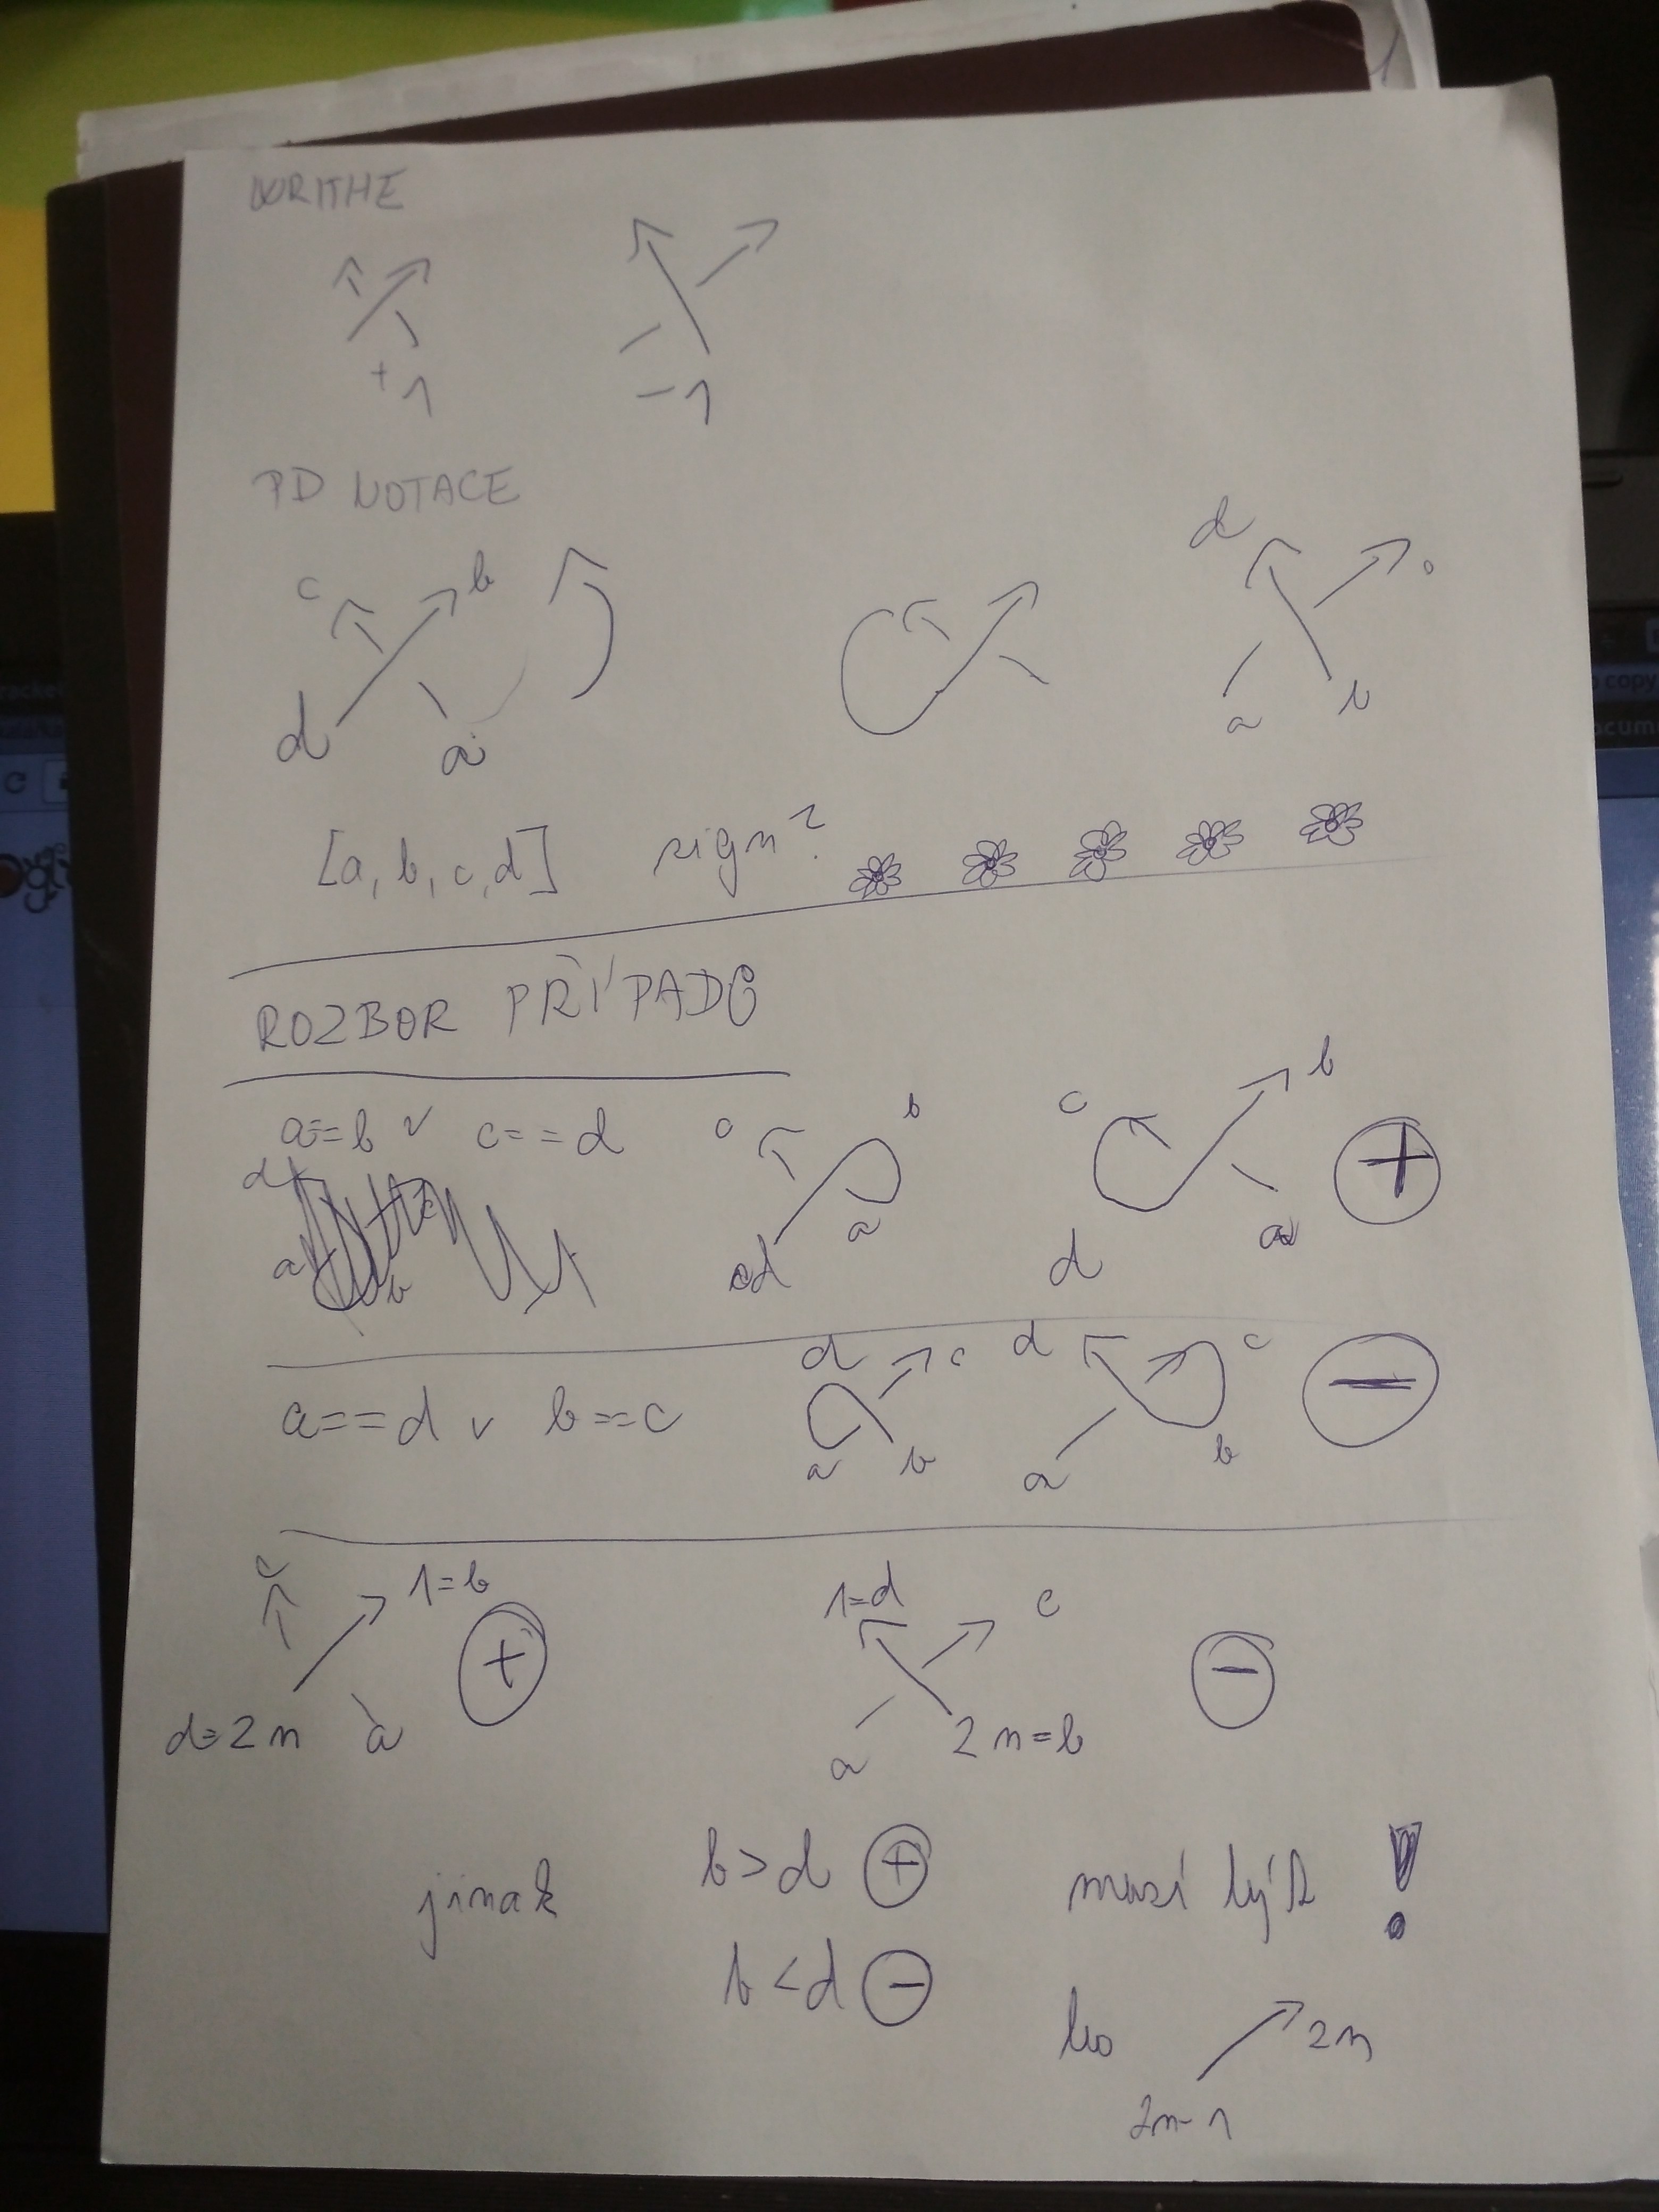 WRITHE
+1 -1
PD NOTACE
c b d
d a a b
[a, b, c, d] sign?
ROZBOR PŘÍPADŮ
a==b ∨ c==d
c b c b +
d a d a
d
a b
a==d ∨ b==c
d c d c -
a b a b
c 1=b + 1=d c -
d=2n a a 2n=b
jinak b>d + musí být !
b<d -
bo 2n
2n-1